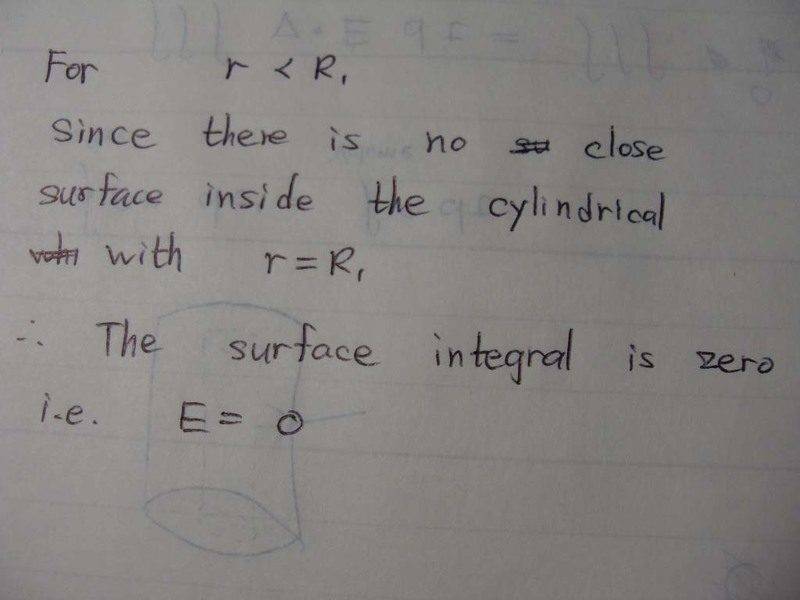 For r < R₁
Since there is no close
surface inside the cylindrical
with r = R₁
∴ The surface integral is zero
i.e. E = 0